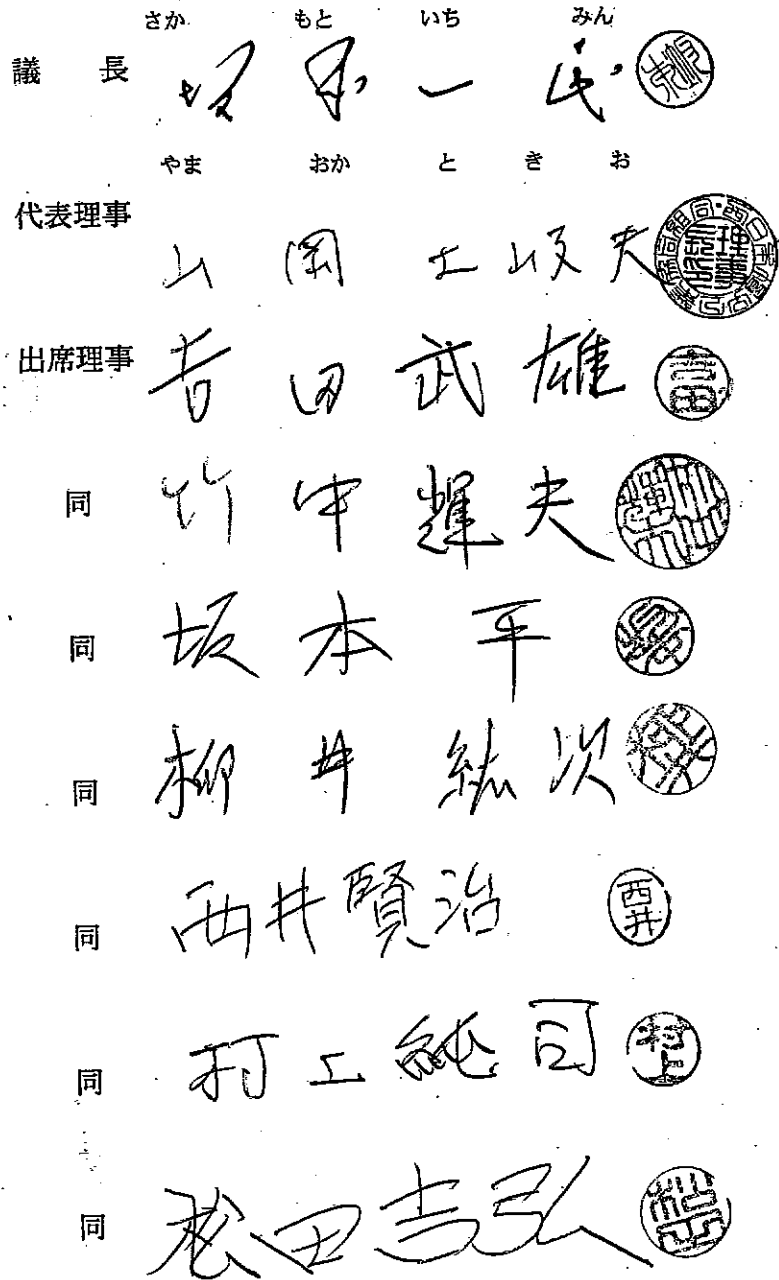 さか もと いち みん
議長 坂本一民
やま おか と き お
代表理事 山岡土岐夫
出席理事 吉田武雄
同 竹中輝夫
同 坂本平
同 柳井紘次
同 西井賢治 西井
同 村上純司 村上
同 松田吉弘